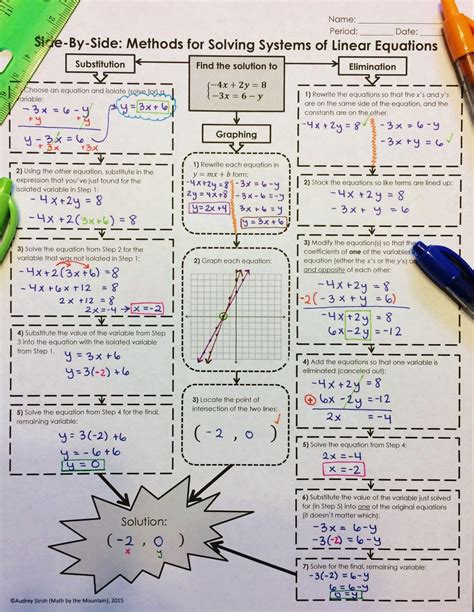 Name:
Period: Date:
Side-By-Side: Methods for Solving Systems of Linear Equations
Substitution
Find the solution to
-4x + 2y = 8
-3x = 6 - y
Elimination
Graphing
Choose an equation and isolate (solve for) a
variable:
-3x = 6 - y
+y +y
y - 3x = 6
+3x +3x
y = 3x + 6
2) Using the other equation, substitute in the
expression that you've just found for the
isolated variable in Step 1:
-4x + 2y = 8
-4x + 2(3x+6) = 8
3) Solve the equation from Step 2 for the
variable that was not isolated in Step 1:
-4x + 2(3x+6) = 8
-4x + 6x + 12 = 8
2x + 12 = 8
2x = -4 → x = -2
4) Substitute the value of the variable from Step
3 into the equation with the isolated variable
from Step 1.
y = 3x + 6
y = 3(-2) + 6
5) Solve the equation from Step 4 for the final,
remaining variable:
y = 3(-2) + 6
y = -6 + 6
y = 0
1) Rewrite each equation in
y = mx + b form:
-4x + 2y = 8
2y = 4x + 8
y = 2x + 4
-3x = 6 - y
-3x - 6 = -y
3x + 6 = y
y = 3x + 6
2) Graph each equation:
3) Locate the point of
intersection of the two lines:
(-2, 0)
1) Rewrite the equations so that the x's and y's
are on the same side of the equation, and the
constants are on the other.
-4x + 2y = 8
-3x = 6 - y
-3x + y = 6
2) Stack the equations so like terms are lined up:
-4x + 2y = 8
-3x + y = 6
3) Modify the equation(s) so that the
coefficients of one of the variables
equation (either the x's or the y's) are
and opposite of each other:
-4x + 2y = 8
-2(-3x + y = 6)
-4x + 2y = 8
6x - 2y = -12
4) Add the equations so that one variable is
eliminated (canceled out):
-4x + 2y = 8
+ 6x - 2y = -12
2x = -4
5) Solve the equation from Step 4:
2x = -4
x = -2
6) Substitute the value of the variable just solved
for (in Step 5) into one of the original equations
(it doesn't matter which):
-3x = 6 - y
-3(-2) = 6 - y
7) Solve for the final, remaining variable:
-3(-2) = 6 - y
6 = 6 - y
0 = -y
y = 0
Solution:
(-2, 0)
x y
©Audrey Stroh (Math by the Mountain), 2015